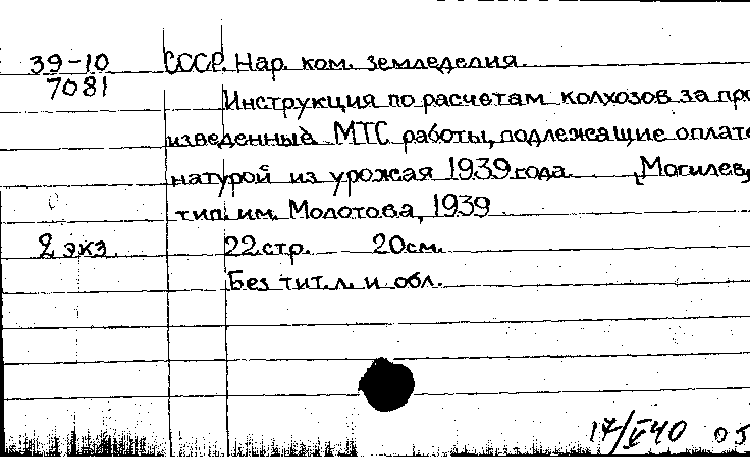 39-10 СССР. Нар. ком. земледелия.
7081
Инструкция по расчетам колхозов за про
изведенные МТС работы, подлежащие оплате
натурой из урожая 1939 года. [Могилев,
тип. им. Молотова, 1939
2 экз. 22 стр. 20 см.
Без тит. л. и обл.
17/V 40 05